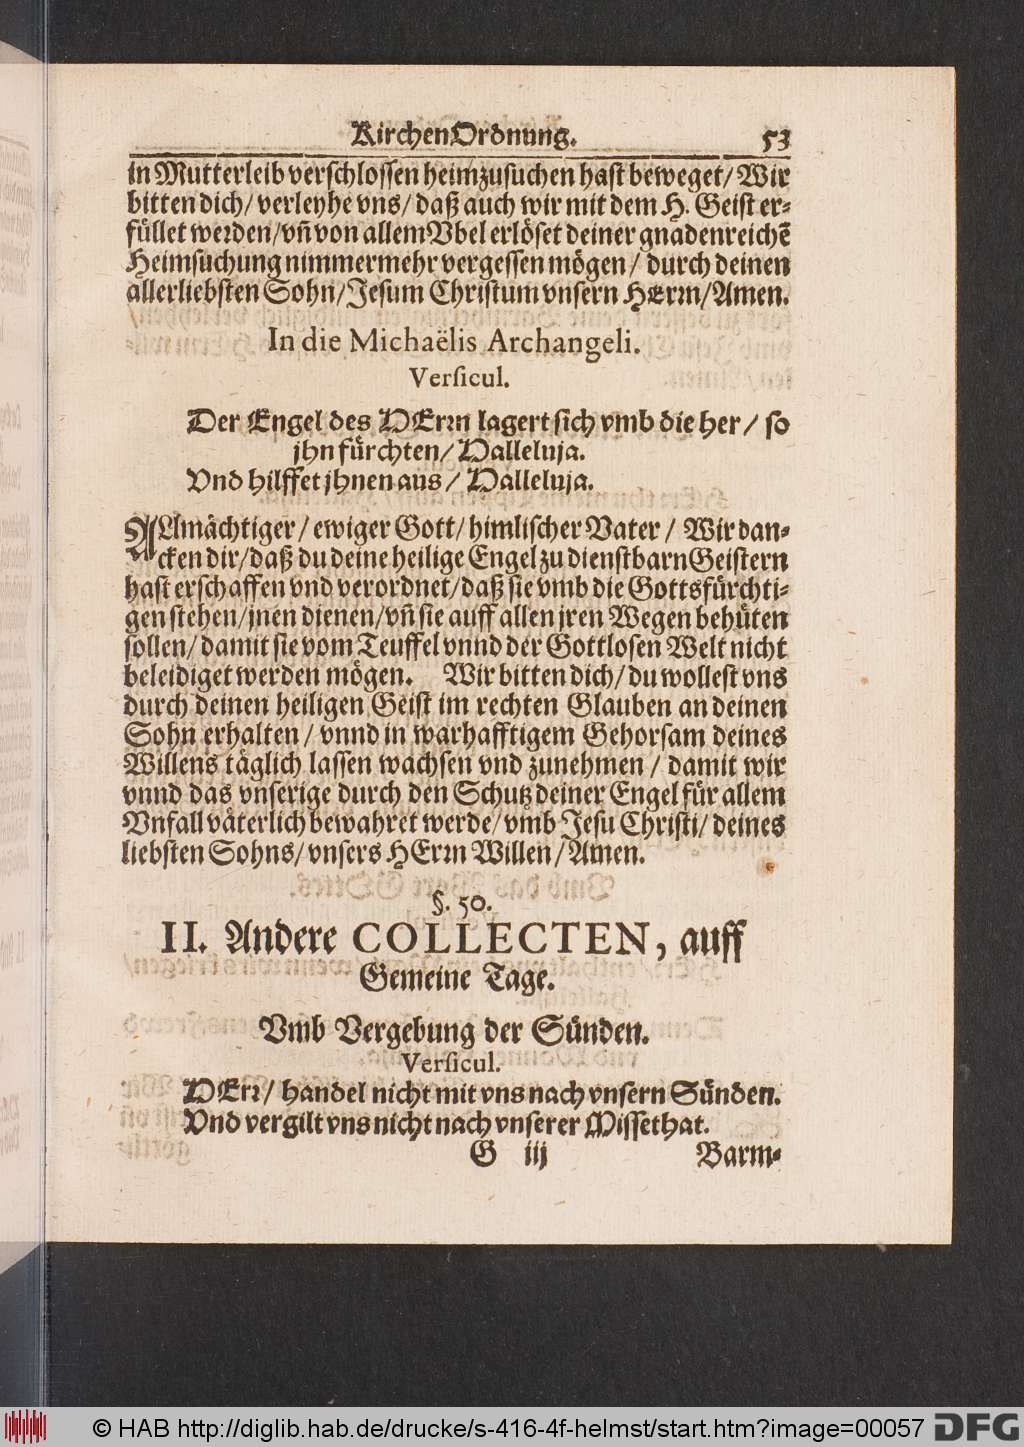 KirchenOrdnung. 53
in Mutterleib verschlossen heimzusuchen hast beweget/ Wir
bitten dich/ verleyhe vns/ daß auch wir mit dem H. Geist er⸗
füllet werden/vñ von allem Vbel erlöset deiner gnadenreichẽ
Heimsuchung nimmermehr vergessen mögen/ durch deinen
allerliebsten Sohn/Jesum Christum vnsern HErrn/Amen.
In die Michaëlis Archangeli.
Versicul.
Der Engel des HErrn lagert sich vmb die her/ so
jhn fürchten/ Halleluja.
Vnd hilffet jhnen aus/ Halleluja.
ALmächtiger/ ewiger Gott/ himlischer Vater/ Wir dan⸗
cken dir/daß du deine heilige Engel zu dienstbarn Geistern
hast erschaffen vnd verordnet/daß sie vmb die Gottsfürchti⸗
gen stehen/jnen dienen/vñ sie auff allen jren Wegen behüten
sollen/ damit sie vom Teuffel vnnd der Gottlosen Welt nicht
beleidiget werden mögen. Wir bitten dich/ du wollest vns
durch deinen heiligen Geist im rechten Glauben an deinen
Sohn erhalten/ vnnd in warhafftigem Gehorsam deines
Willens täglich lassen wachsen vnd zunehmen/ damit wir
vnnd das vnserige durch den Schutz deiner Engel für allem
Vnfall väterlich bewahret werde/ vmb Jesu Christi/ deines
liebsten Sohns/ vnsers HErrn Willen/Amen.
§. 50.
II. Andere COLLECTEN, auff
Gemeine Tage.
Vmb Vergebung der Sünden.
Versicul.
HErr/ handel nicht mit vns nach vnsern Sünden.
Vnd vergilt vns nicht nach vnserer Missethat.
G iij Barm⸗
© HAB http://diglib.hab.de/drucke/s-416-4f-helmst/start.htm?image=00057 DFG